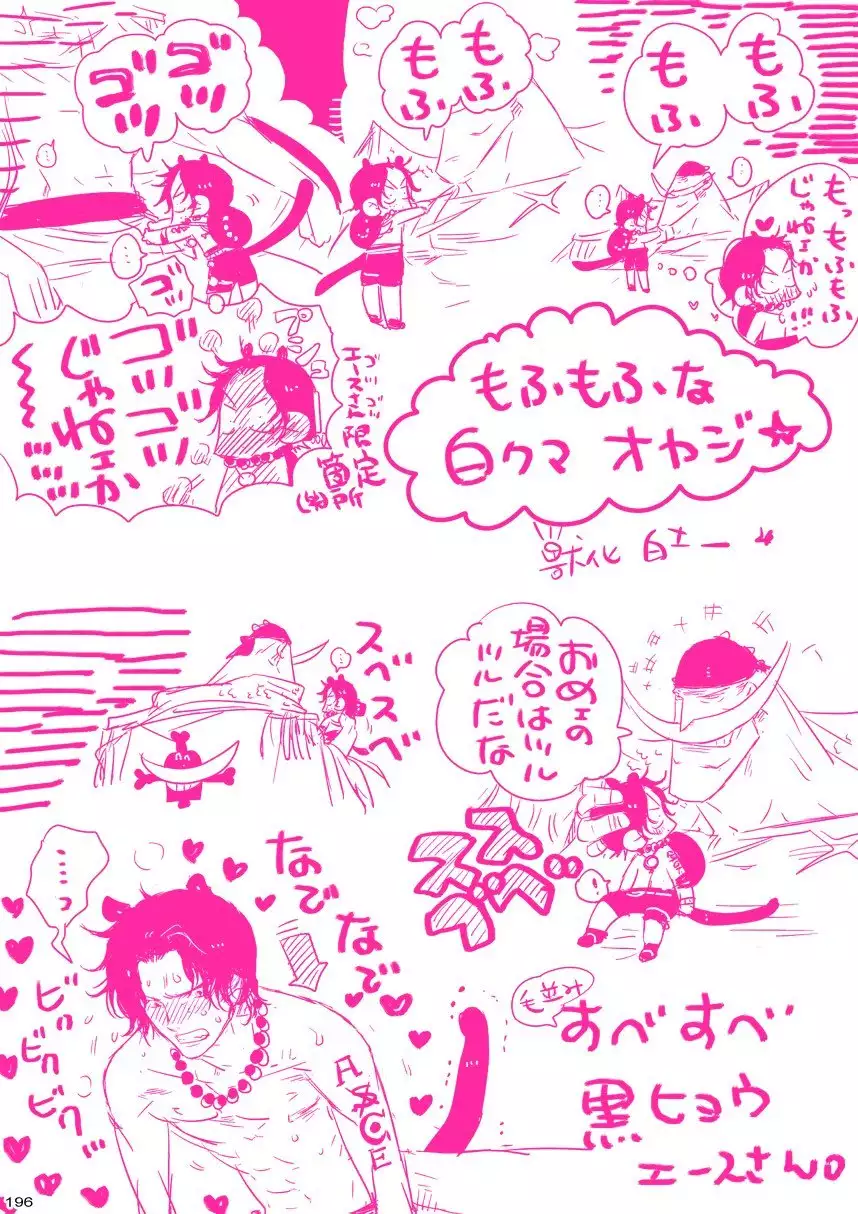 もふ
もふ
もっもふもふ
じゃねェか…!!
もふ
もふ
ゴツ
ゴツ
ゴツ
ゴツゴツ
じゃねェか
ゴツゴツ
エースさん限定
箇所
(笑)
もふもふな
白クマ オヤジ☆
獣化 白土一
おめェの
場合はツル
ツルだな
スベスベ
スベスベ
なでなで
……っ
ビクビクビクッ
毛並み
すべすべ
黒ヒョウ
エースさん。
ASCE
196